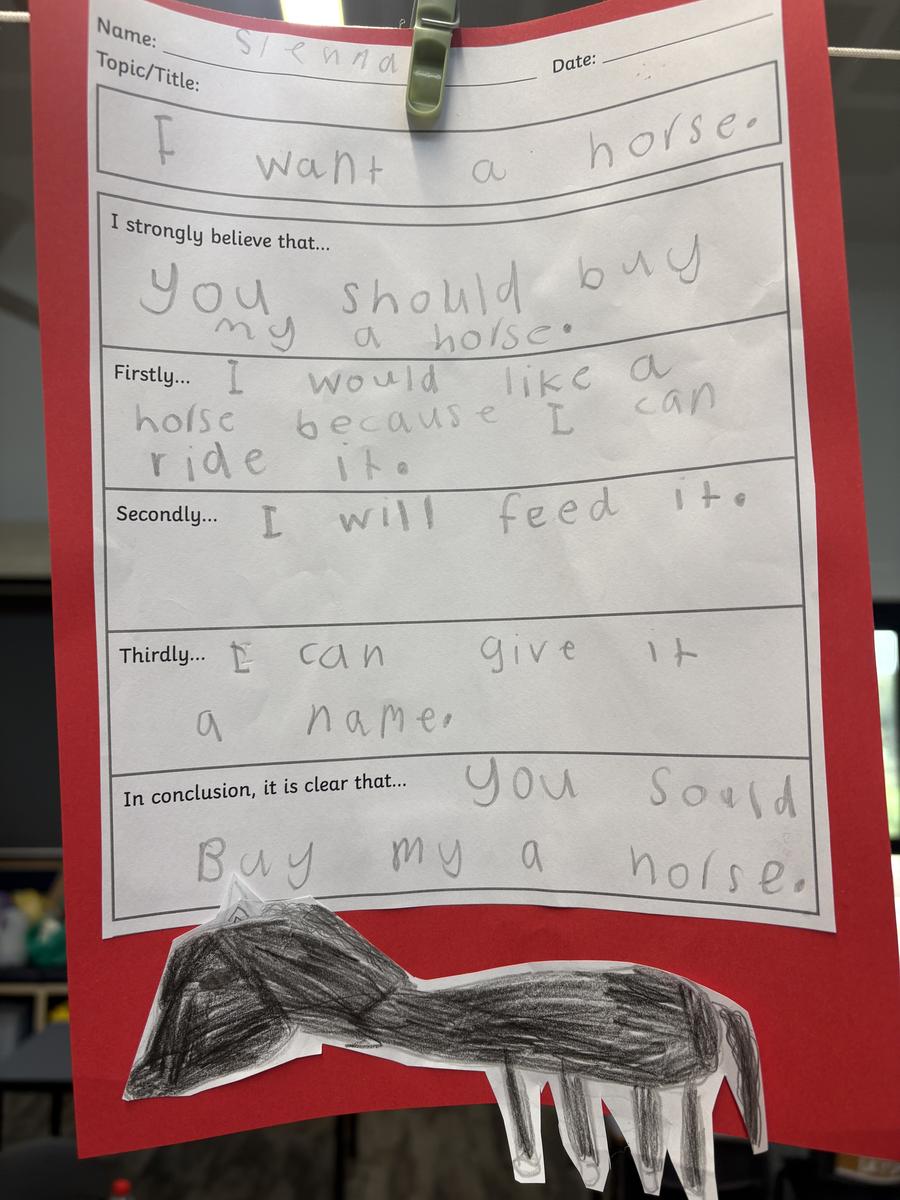 Name: Sienna Date:
Topic/Title:
I want a horse.
I strongly believe that...
you should buy
my a horse.
Firstly... I would like a
horse because I can
ride it.
Secondly... I will feed it.
Thirdly... I can give it
a name.
In conclusion, it is clear that... you sould
Buy my a horse.